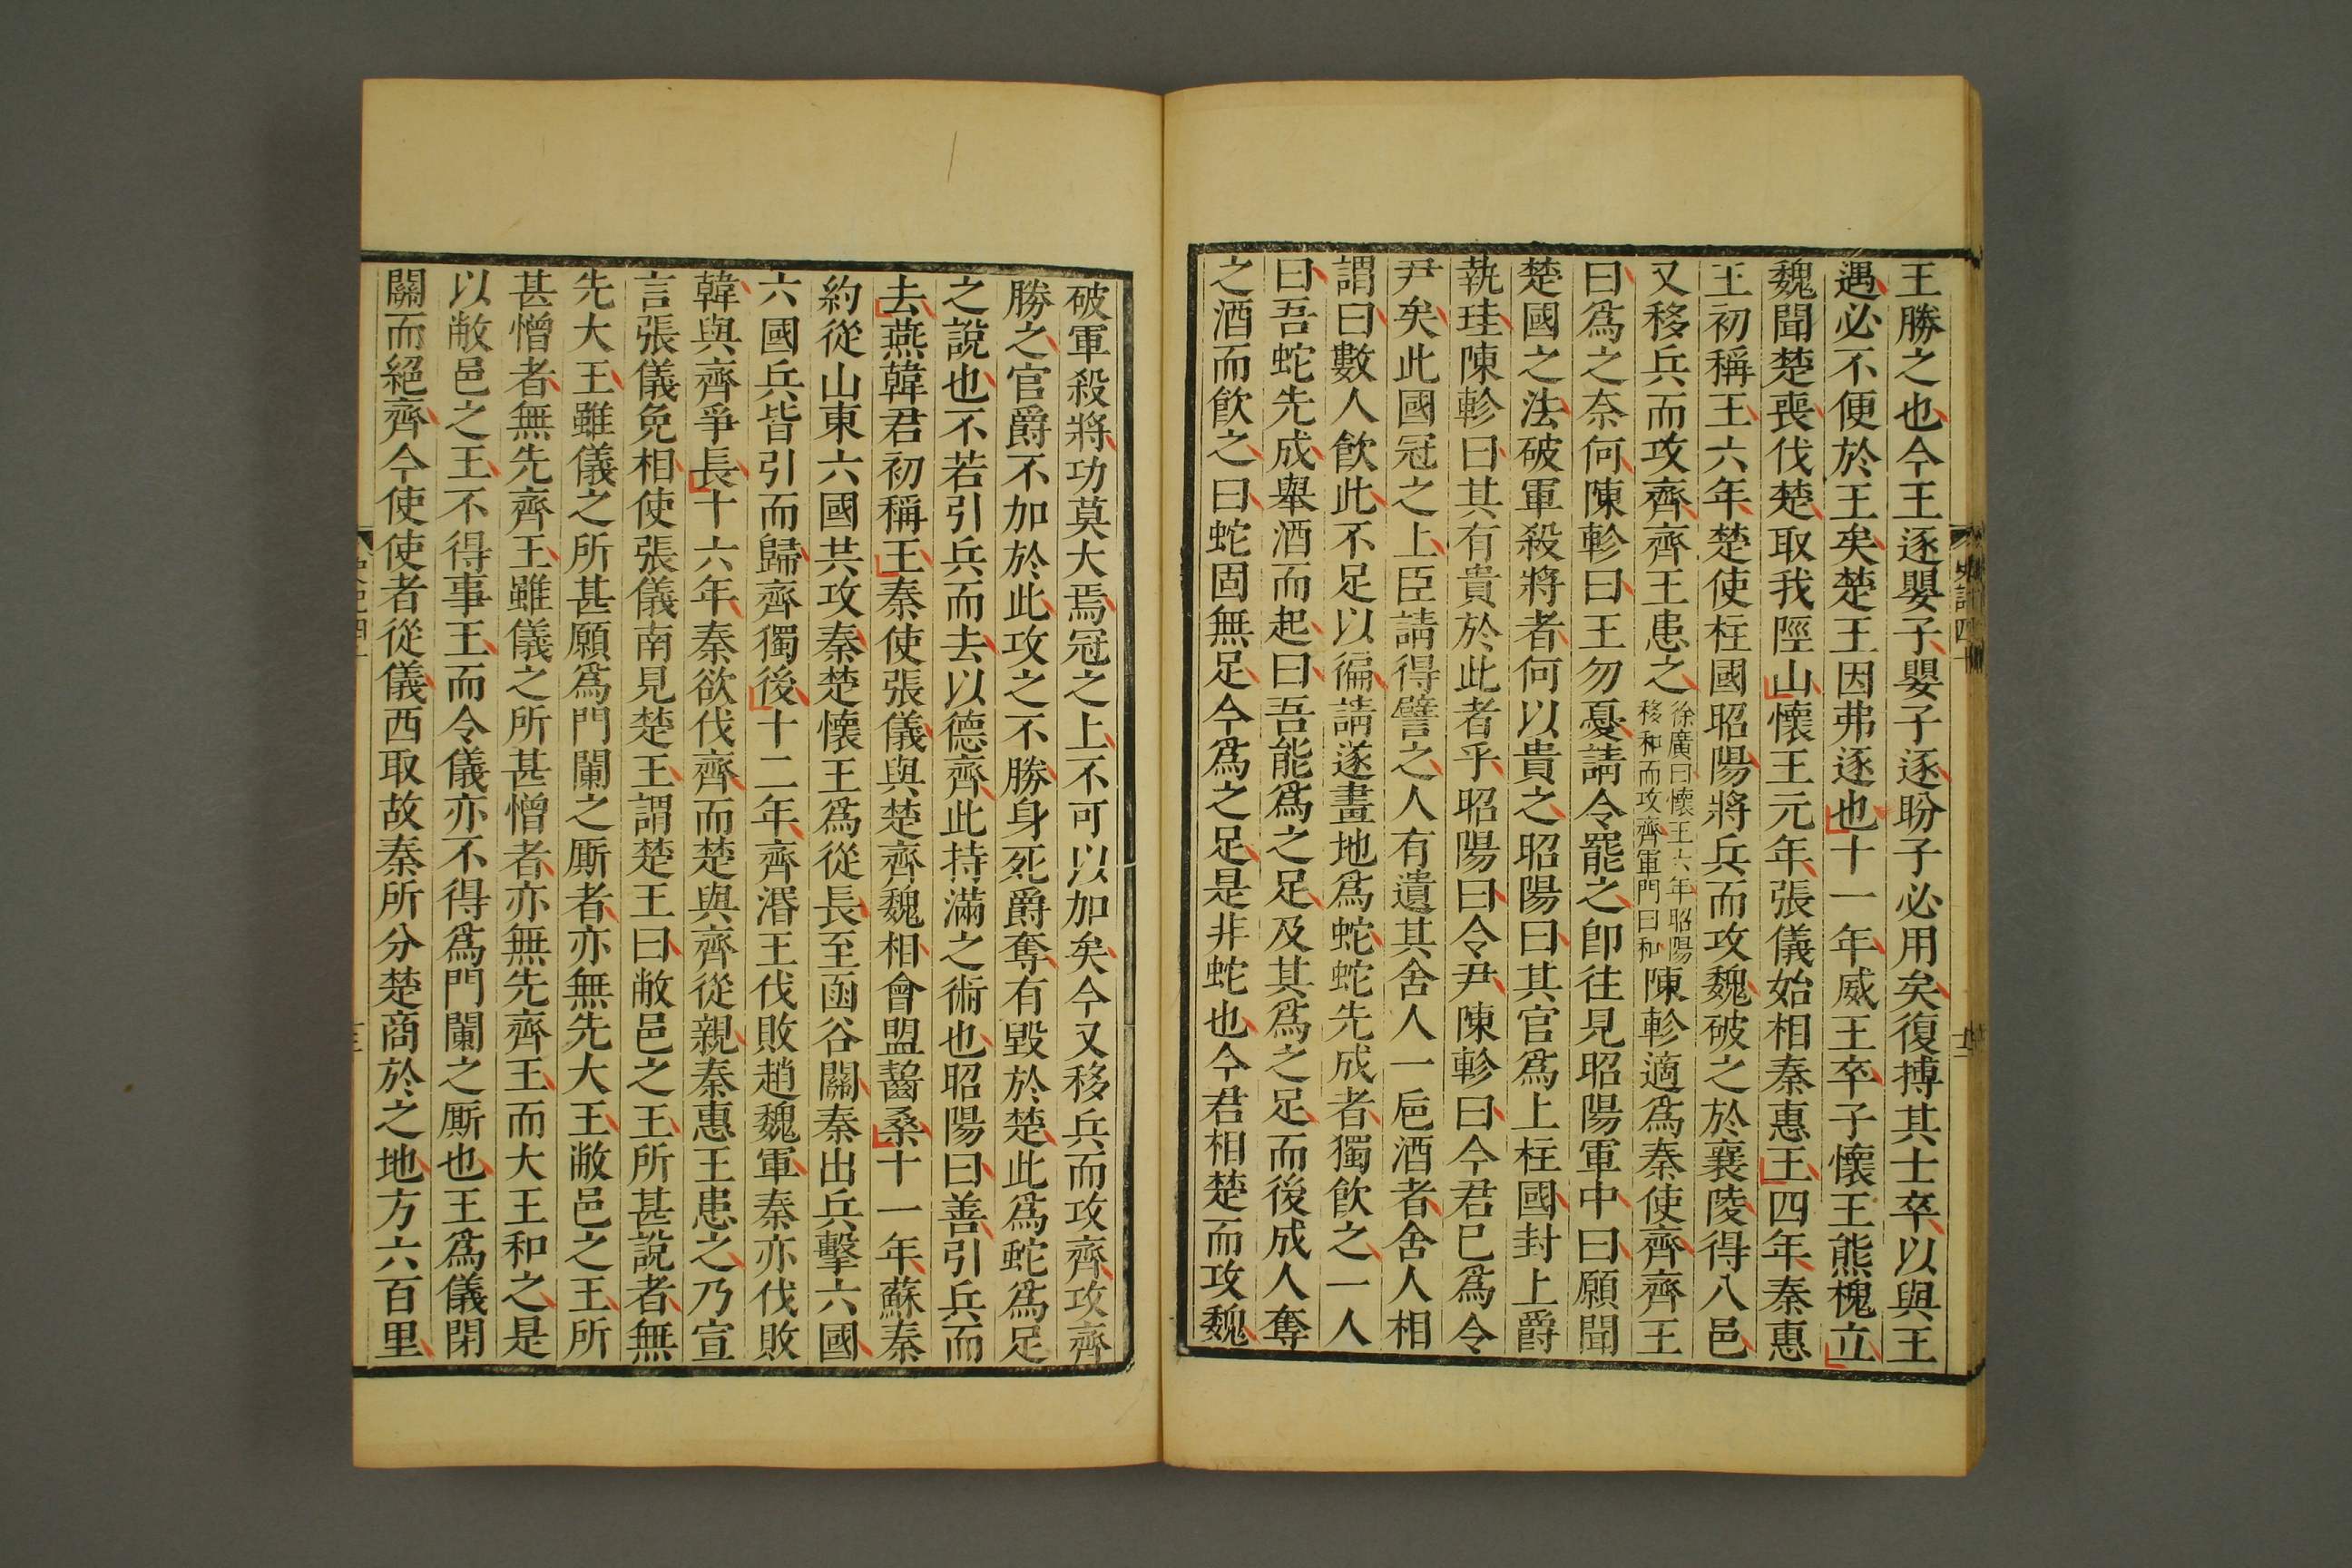 王勝之也今王逐嬰子嬰子逐盼子必用矣復搏其士卒以與王
遇必不便於王矣楚王因弗逐也十一年威王卒子懷王熊槐立
魏聞楚喪伐楚取我陘山懷王元年張儀始相秦惠王四年秦惠
王初稱王六年楚使柱國昭陽將兵而攻魏破之於襄陵得八邑
又移兵而攻齊齊王患之
徐廣曰懷王六年昭陽
移和而攻齊軍門曰和
陳軫適爲秦使齊齊王
曰爲之奈何陳軫曰王勿憂請令罷之卽往見昭陽軍中曰願聞
楚國之法破軍殺將者何以貴之昭陽曰其官爲上柱國封上爵
執珪陳軫曰其有貴於此者乎昭陽曰令尹陳軫曰今君已爲令
尹矣此國冠之上臣請得譬之人有遺其舍人一巵酒者舍人相
謂曰數人飲此不足以徧請遂畫地爲蛇蛇先成者獨飲之一人
曰吾蛇先成舉酒而起曰吾能爲之足及其爲之足而後成人奪
之酒而飲之曰蛇固無足今爲之足是非蛇也今君相楚而攻魏
破軍殺將功莫大焉冠之上不可以加矣今又移兵而攻齊攻齊
勝之官爵不加於此攻之不勝身死爵奪有毀於楚此爲蛇爲足
之說也不若引兵而去以德齊此持滿之術也昭陽曰善引兵而
去燕韓君初稱王秦使張儀與楚齊魏相會盟齧桑十一年蘇秦
約從山東六國共攻秦楚懷王爲從長至函谷關秦出兵擊六國
六國兵皆引而歸齊獨後十二年齊湣王伐敗趙魏軍秦亦伐敗
韓與齊爭長十六年秦欲伐齊而楚與齊從親秦惠王患之乃宣
言張儀免相使張儀南見楚王謂楚王曰敝邑之王所甚說者無
先大王雖儀之所甚願爲門闌之厮者亦無先大王敝邑之王所
甚憎者無先齊王雖儀之所甚憎者亦無先齊王而大王和之是
以敝邑之王不得事王而令儀亦不得爲門闌之厮也王爲儀閉
關而絕齊今使使者從儀西取故秦所分楚商於之地方六百里